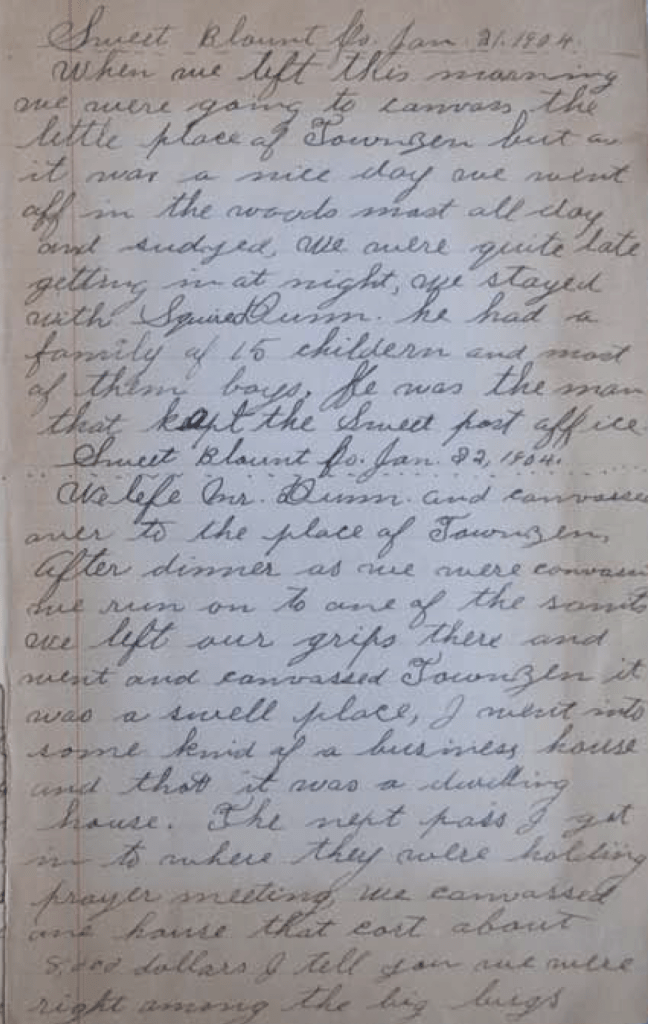 Sweet Blount Co. Jan. 21. 1904.
When we left this morning
we were going to canvass the
little place of Townzen but as
it was a nice day we went
off in the woods most all day
and sudyed, we were quite late
getting in at night, we stayed
with Squire Dunn. he had a
family of 15 childern and most
of them boys. He was the man
that kept the Sweet post office.
Sweet Blount Co. Jan. 22, 1904.
We lefe Mr. Dunn. and canvassed
over to the place of Townzen.
After dinner as we were canvassi
we run on to one of the saints
we left our grips there and
went and canvassed Townzen it
was a swell place, I went into
some knid of a business house
and thot it was a dwelling
house. The next pass I got
in to where they were holding
prayer meeting, we canvassed
one house that cost about
8,000 dollars I tell you we were
right among the big bugs